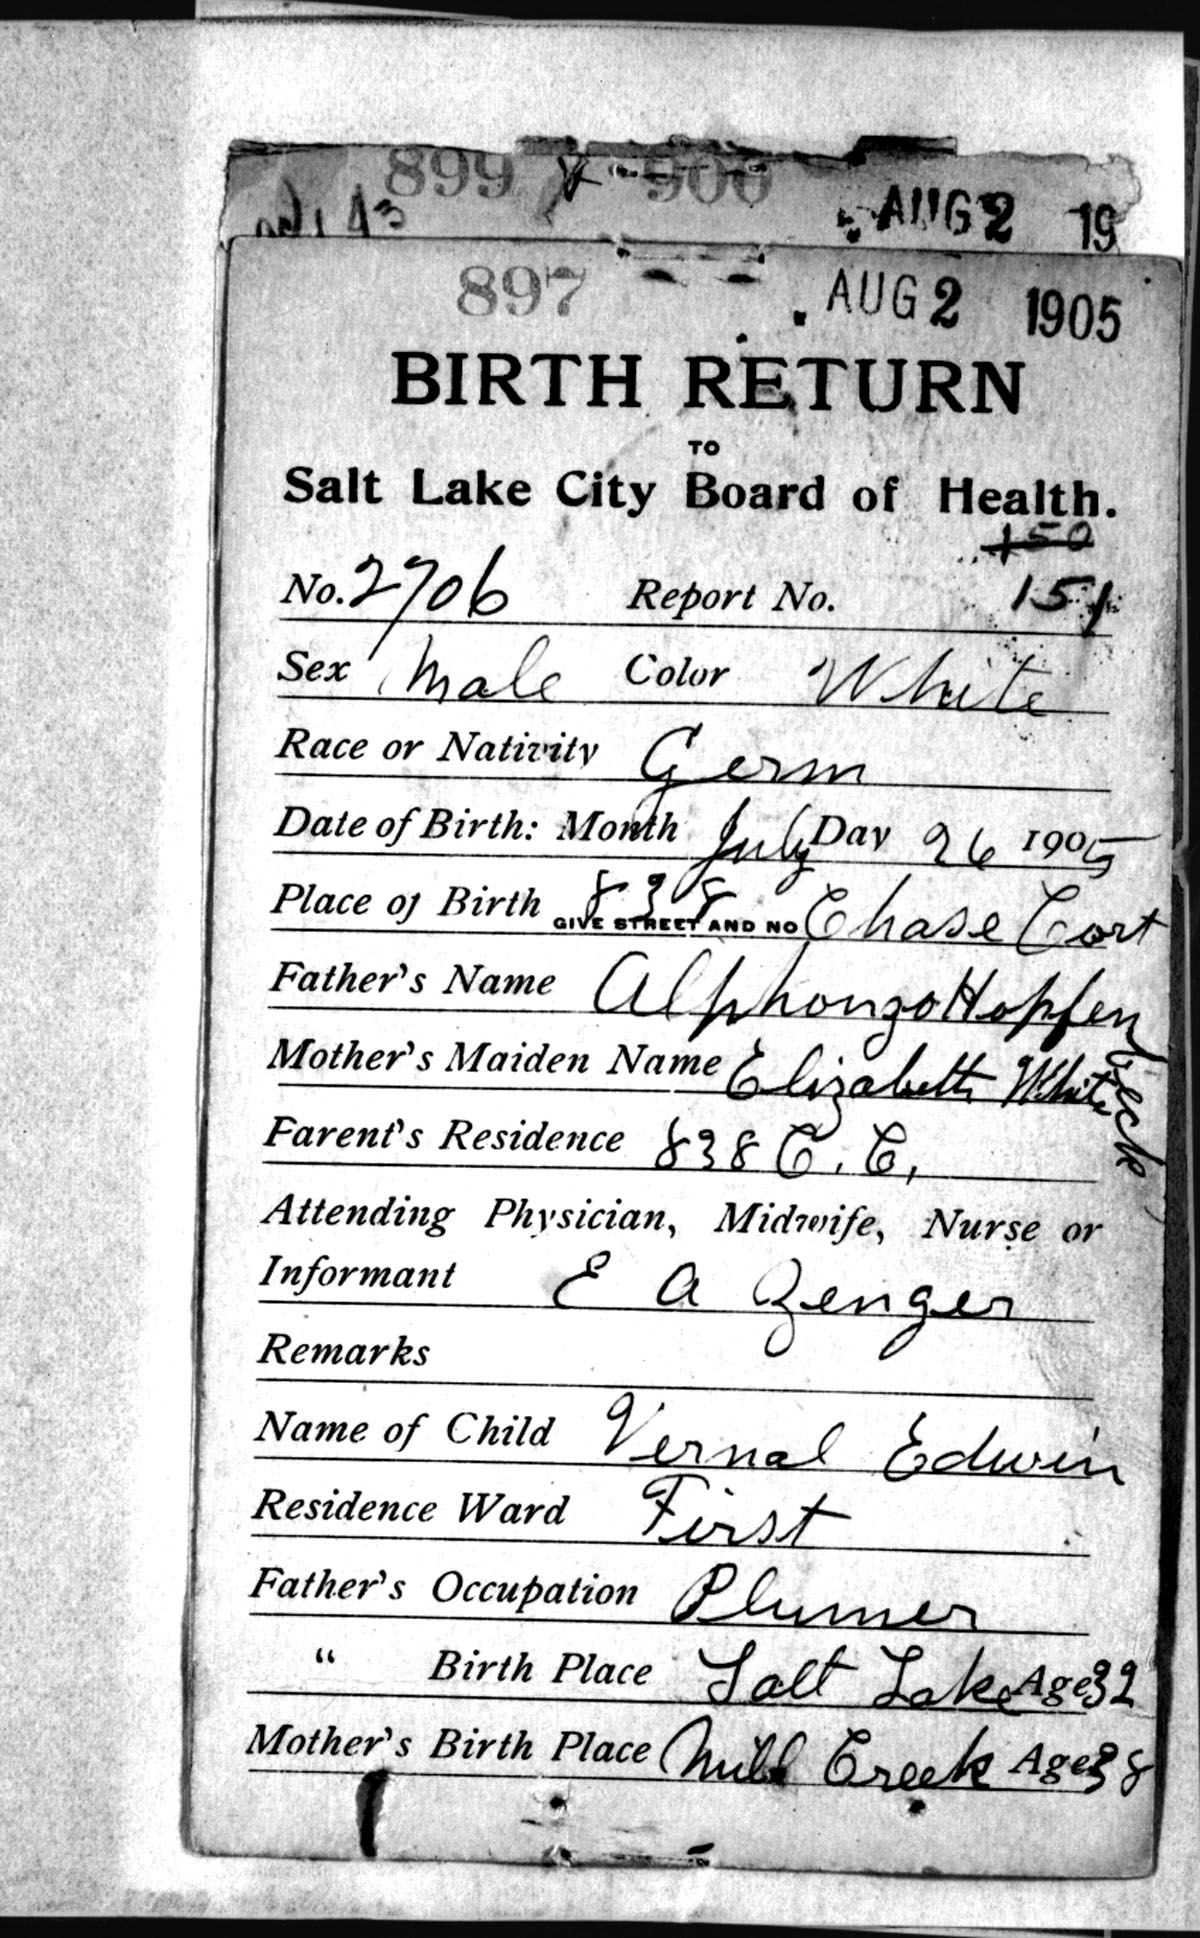 899 900
AUG 2 19
897 AUG 2 1905
BIRTH RETURN
TO
Salt Lake City Board of Health.
150
No. 2706 Report No. 151
Sex Male Color White
Race or Nativity Germ
Date of Birth: Month July Day 26 1905
Place of Birth 838 Chase Cort
GIVE STREET AND NO
Father's Name Alphonzo Hopfenbeck
Mother's Maiden Name Elizabeth White
Parent's Residence 838 C. C.
Attending Physician, Midwife, Nurse or
Informant E A Zenger
Remarks
Name of Child Vernal Edwin
Residence Ward First
Father's Occupation Plumer
" Birth Place Salt Lake Age 32
Mother's Birth Place Mill Creek Age 38